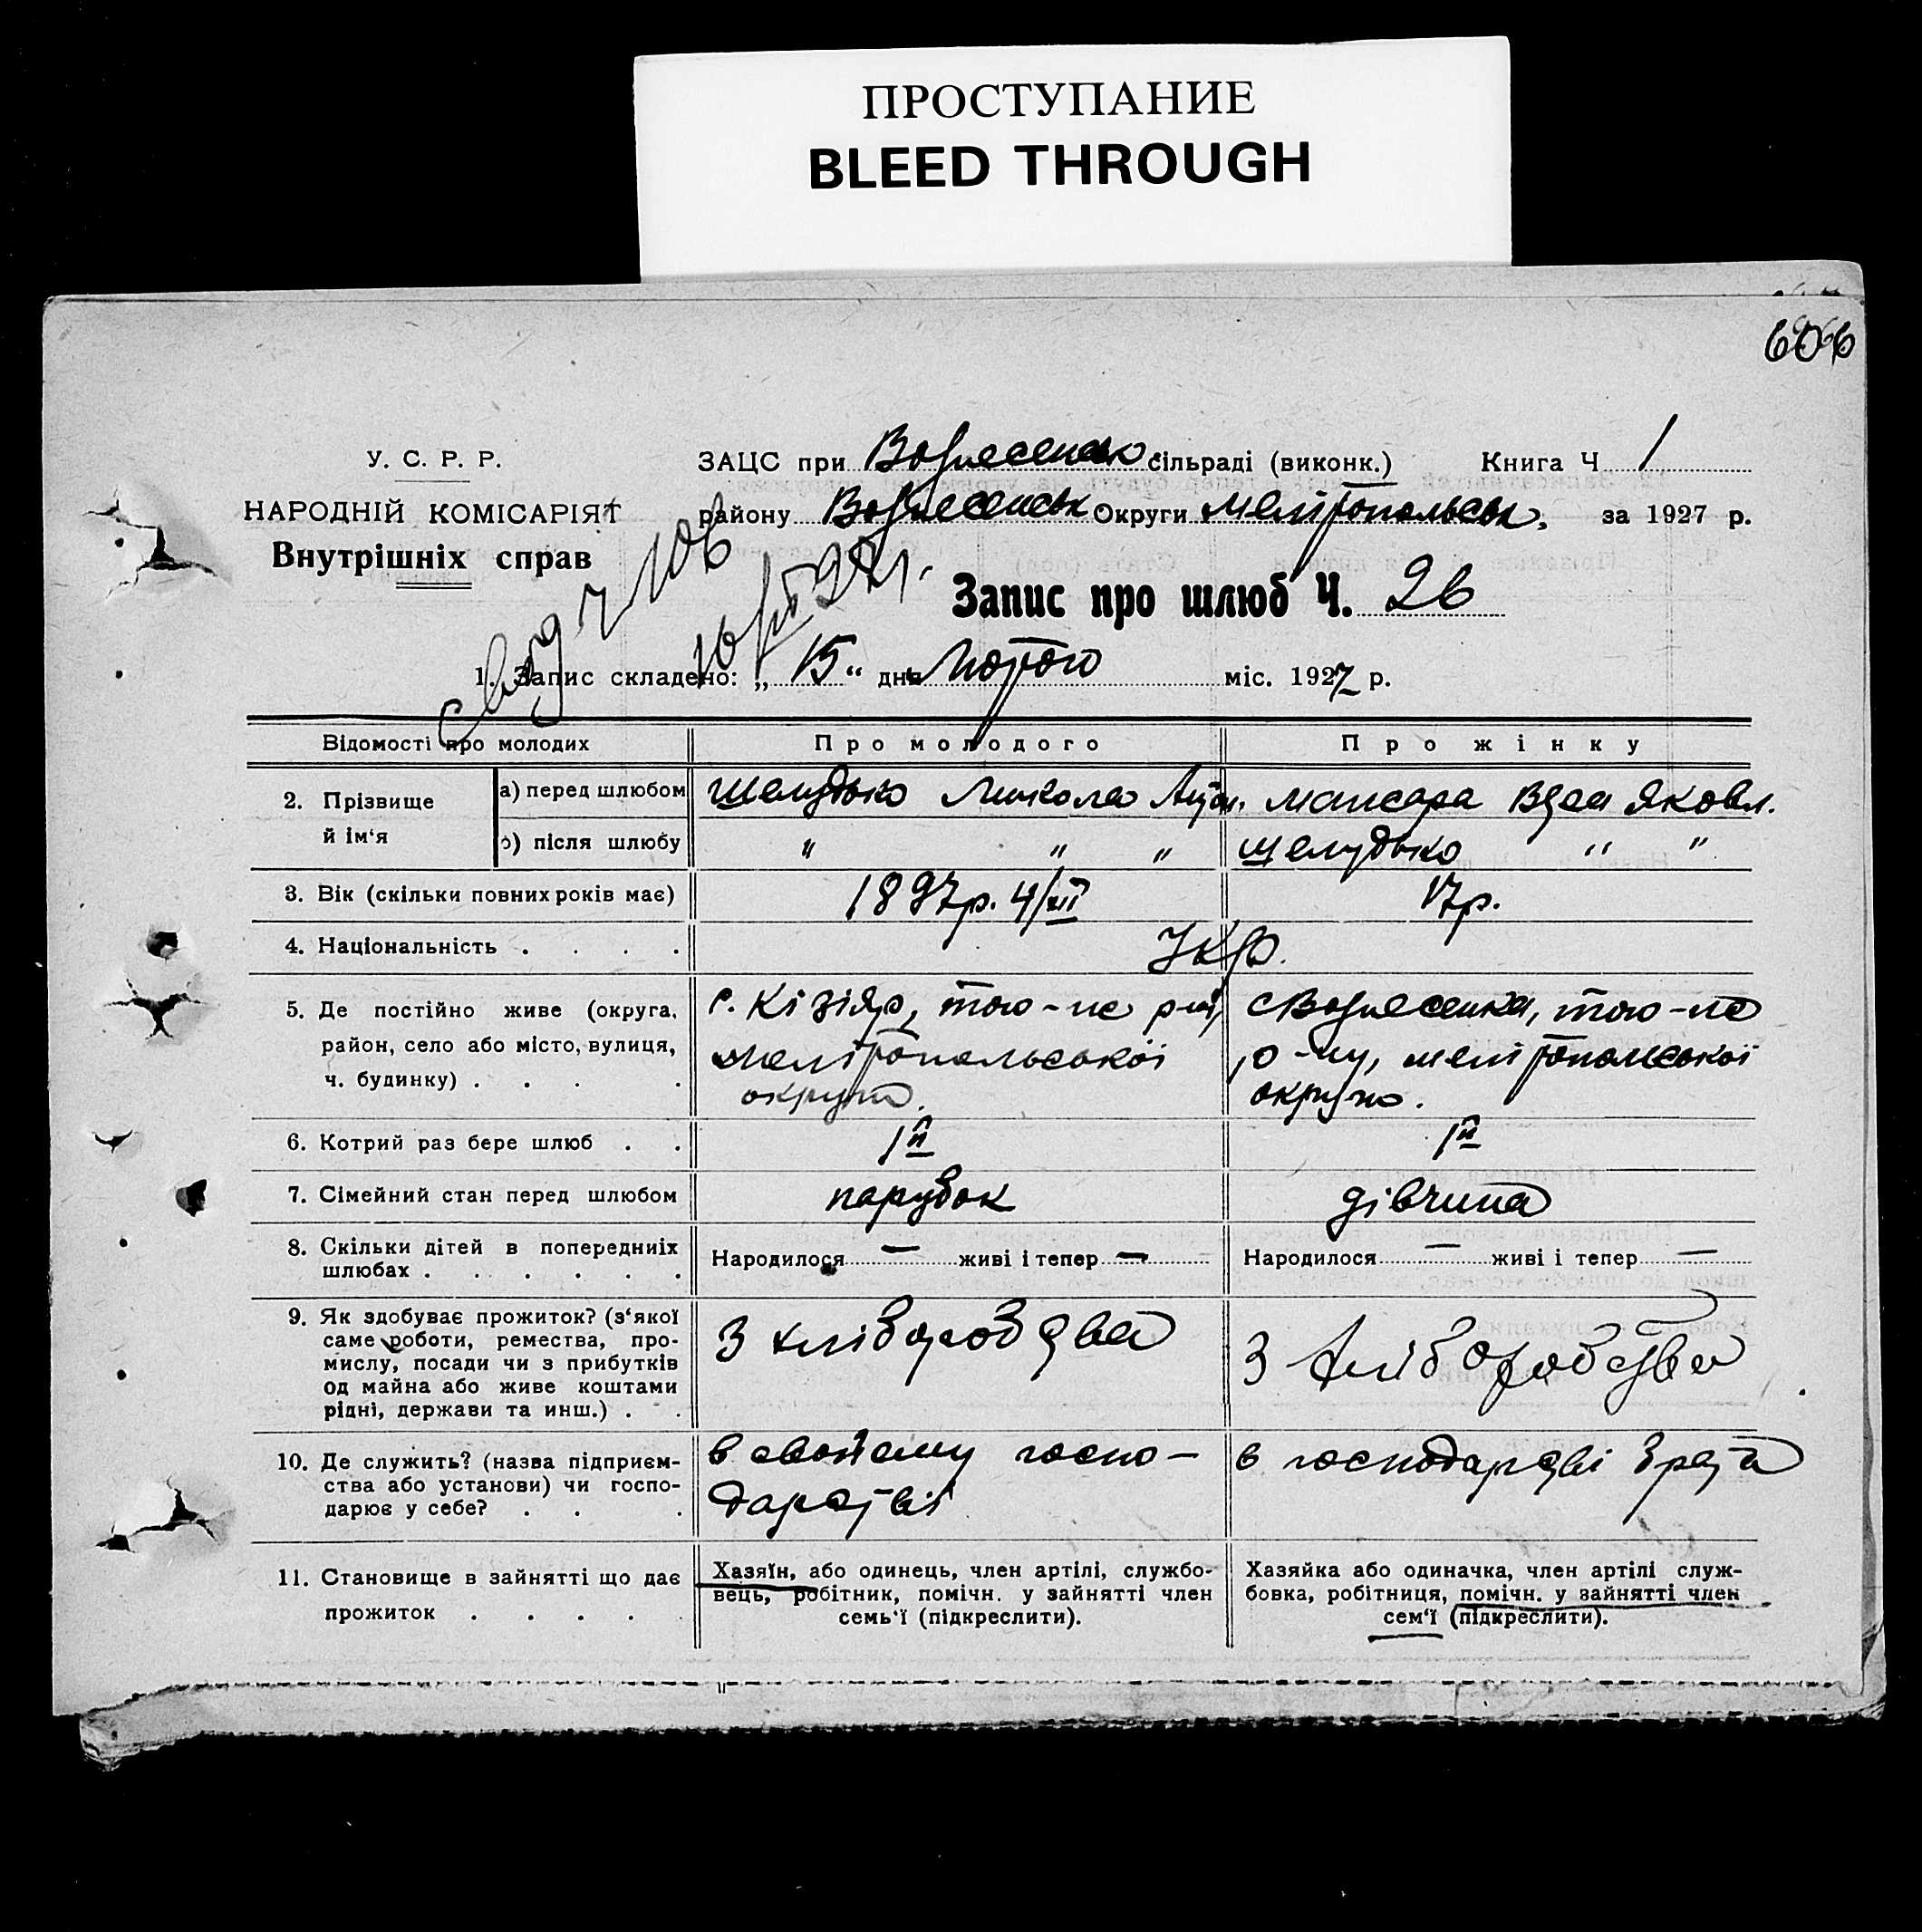 ПРОСТУПАНИЕ
BLEED THROUGH
606
У. С. Р. Р.
НАРОДНІЙ КОМІСАРІЯТ
Внутрішніх справ
ЗАЦС при Вознесенськ. сільраді (виконк.) Книга Ч. 1
району Вознесенськ. Округи Мелітопольськ. за 1927 р.
Запис про шлюб Ч. 26
1. Запис складено: „ 15 “ дня Лютого міс. 1927 р.
Відомості про молодих Про молодого Про жінку
2. Прізвище й ім‘я
а) перед шлюбом Шелудько Микола Мансара Яковл.
б) після шлюбу " " " Шелудько " "
3. Вік (скільки повних років має) 1897р. 17р.
4. Національність . . . . Укр.
5. Де постійно живе (округа, район, село або місто, вулиця, ч. будинку) . . . .
с. Кізіяр, того-ж р-ну,
Мелітопольської
округи.
с Вознесенка, того-ж
р-ну, Мелітопольської
округи.
6. Котрий раз бере шлюб . . 1й 1й
7. Сімейний стан перед шлюбом парубок дівчина
8. Скільки дітей в попередниіх шлюбах . . . . . .
Народилося — живі і тепер —
Народилося — живі і тепер —
9. Як здобуває прожиток? (з‘якої
саме роботи, ремества, про-
мислу, посади чи з прибутків
од майна або живе коштами
рідні, держави та инш.) . .
З хліборобства
З хліборобства
10. Де служить? (назва підприєм-
ства або установи) чи госпо-
дарює у себе? . . .
в свойому госпо-
дарстві
в господарстві
11. Становище в зайнятті що дає
прожиток . . . . .
Хазяїн, або одинець, член артілі, службо-
вець, робітник, помічн. у зайнятті член
семь‘ї (підкреслити).
Хазяйка або одиначка, член артілі служ-
бовка, робітниця, помічн. у зайнятті член
сем‘ї (підкреслити).